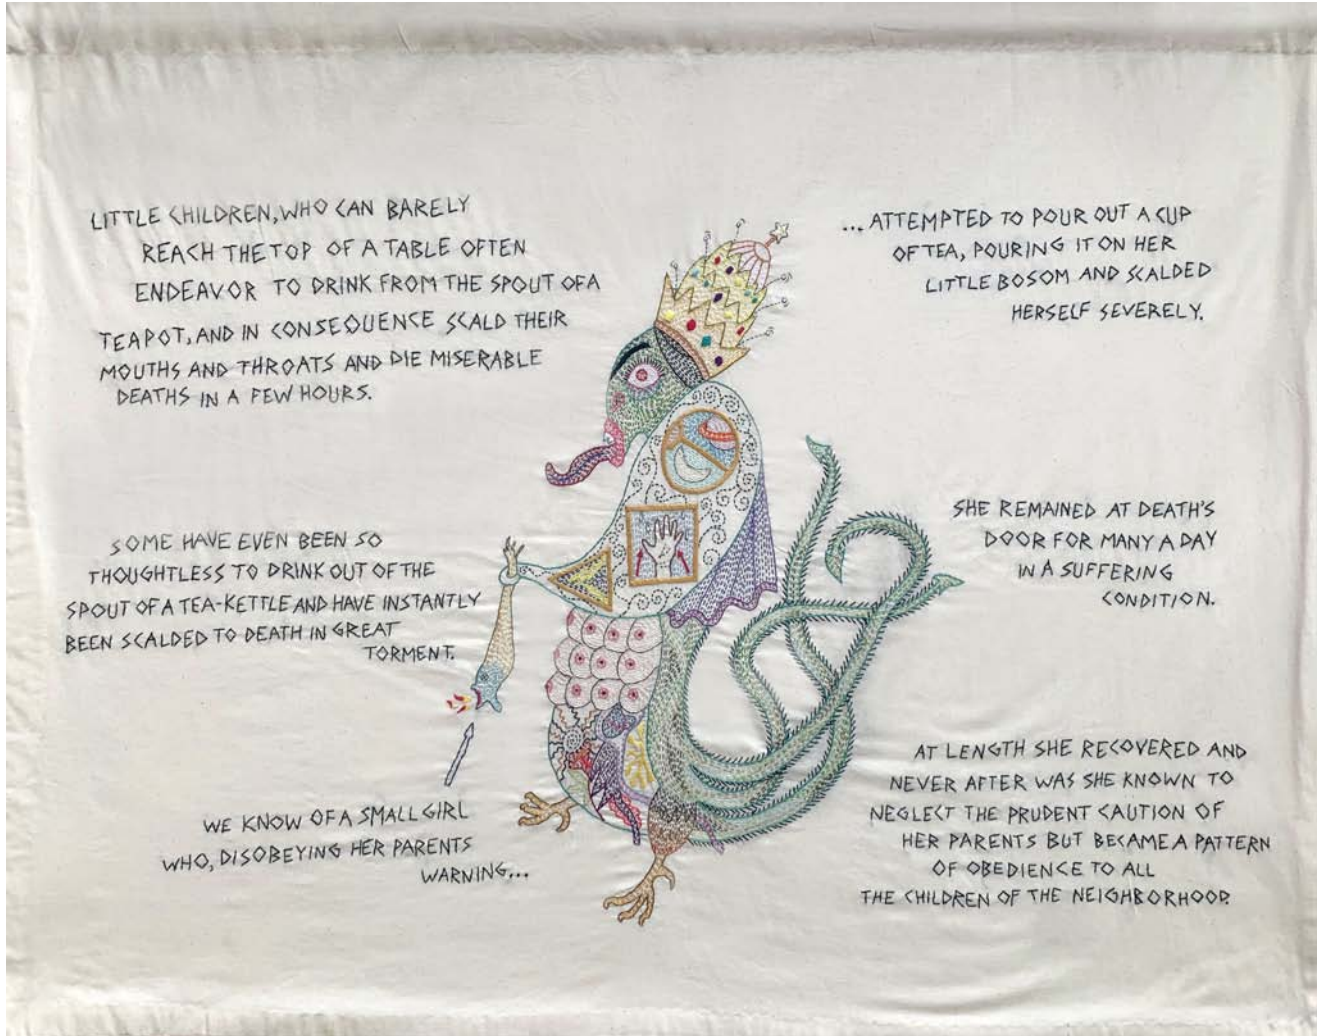 LITTLE CHILDREN, WHO CAN BARELY
REACH THE TOP OF A TABLE OFTEN
ENDEAVOR TO DRINK FROM THE SPOUT OF A
TEAPOT, AND IN CONSEQUENCE SCALD THEIR
MOUTHS AND THROATS AND DIE MISERABLE
DEATHS IN A FEW HOURS.
SOME HAVE EVEN BEEN SO
THOUGHTLESS TO DRINK OUT OF THE
SPOUT OF A TEA-KETTLE AND HAVE INSTANTLY
BEEN SCALDED TO DEATH IN GREAT
TORMENT.
WE KNOW OF A SMALL GIRL
WHO, DISOBEYING HER PARENTS
WARNING...
...ATTEMPTED TO POUR OUT A CUP
OF TEA, POURING IT ON HER
LITTLE BOSOM AND SCALDED
HERSELF SEVERELY.
SHE REMAINED AT DEATH'S
DOOR FOR MANY A DAY
IN A SUFFERING
CONDITION.
AT LENGTH SHE RECOVERED AND
NEVER AFTER WAS SHE KNOWN TO
NEGLECT THE PRUDENT CAUTION OF
HER PARENTS BUT BECAME A PATTERN
OF OBEDIENCE TO ALL
THE CHILDREN OF THE NEIGHBORHOOD.